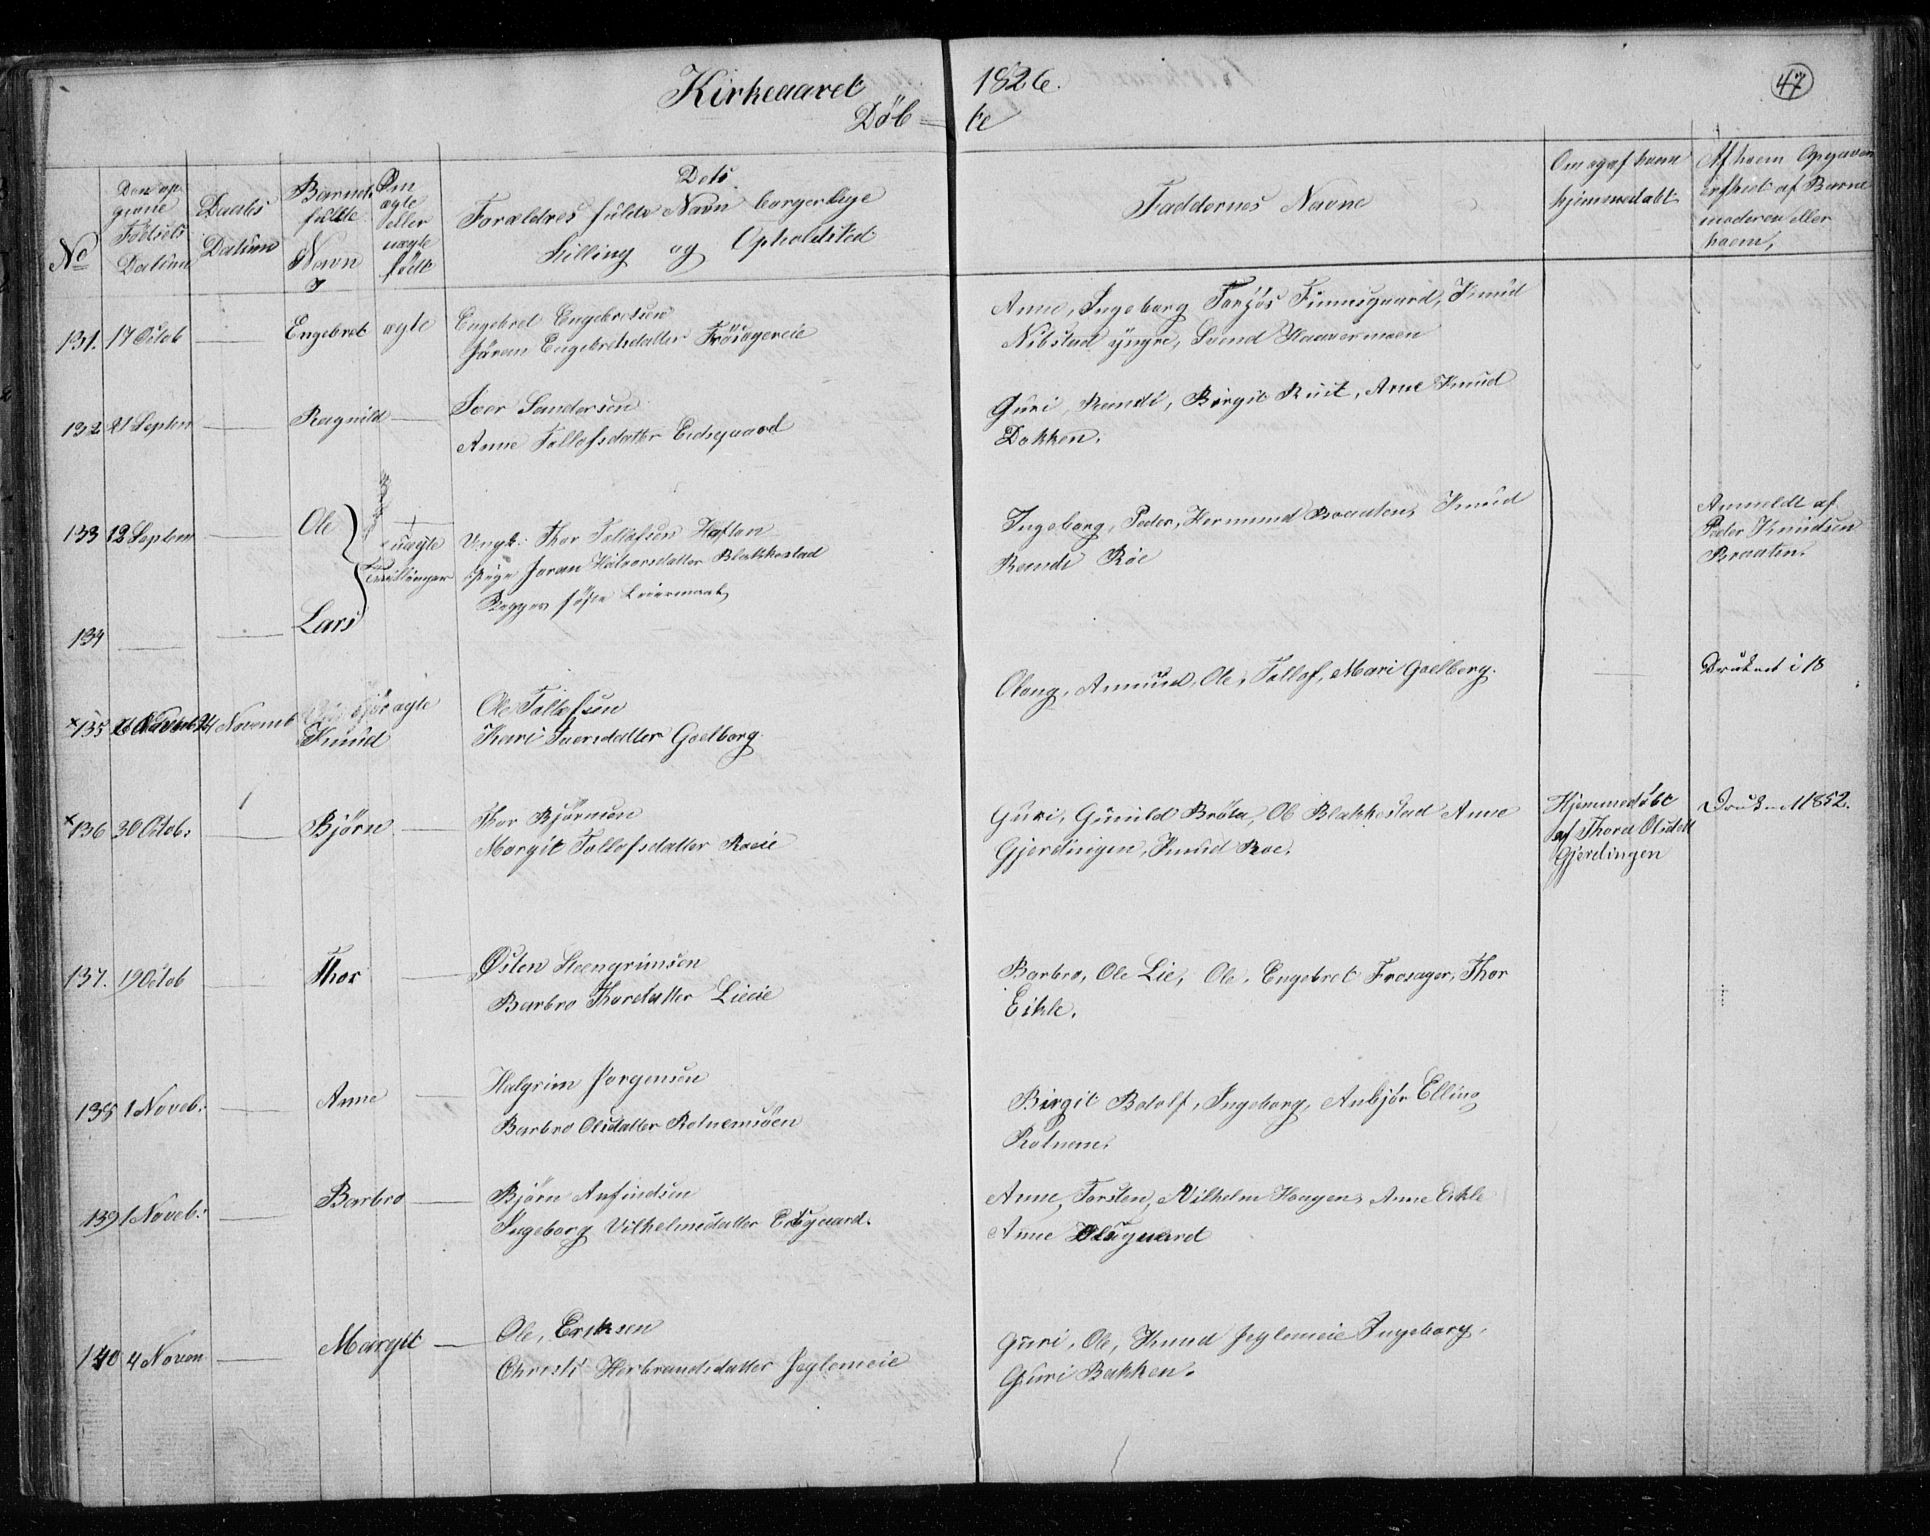 Kirkeaaret 1826.
47
Døbte
No
Den op
givne
Fødsels
Datum
Daabs
Datum
Barnets
fulde
Navn
Om
ægte
eller
uægte
født
Dets
Forældres fulde Navn borgerlige
Stilling og Opholdsted
Faddernes Navne
Om og af hvem
hjemmedøbt
Af hvem Opgaven
er skeet af Barne
moderen eller
hvem,
131. 17 Octob — Engebret ægte Engebret Engebretsen
Jöran Engebretsdatter Frösagereie
Anne, Ingeborg Torjös Finnesgaard, Knud
Nibstad yngre, Svend Haavermoen
132 21 Septen — Ragnild — Iver Sandersen
Anne Tollefsdatter Eidsgaard
Guri, Randi, Birgit Ruit, Arne Knud
Dokken.
133 12 Septem — Ole uægte Ungk: Thor Tollefsen Haftan
Tvillinger Pige Joran Halvorsdatter Blakkestad
Begges første Leiermaal
Ingeborg, Peder, Hermund Braaten, Knud
Randi Röe
Anmeldt af
Peder Knudsen
Braaten.
134 — — Lars
× 135 24 Novemb ægte Ole Tollefsen
Knud Kari Iversdatter Goelberg.
Olaug, Amund, Ole, Tollef, Mari Goelberg.
—
Druknet i 18
× 136 30 Octob: — Bjørn — Thor Bjørnsen
Margit Tollefsdatter Roeie
Guri, Gunild Bröta, Ole Blakkestad Anne
Gjerdingen, Knud Roe.
Hjemmedøbt
af Thora Olsdatt
Gjerdingen
Drukn. 1852.
137. 19 Octob — Thor — Østen Steengrimsen
Barbro Thordatter Lieeie
Barbro, Ole Lie, Ole, Engebret Frosager, Thor
Eikle.
138 1 Noveb: — Anne — Halgrim Jorgensen
Barbro Olsdatter Rotnemsöen
Birgit Botolf, Ingeborg, Anbjör Elling
Rotnem.
139 1 Noveb: — Barbro — Bjørn Anfindsen
Ingeborg Vilhelmsdatter Eidsgaard.
Anne, Torsten, Vilhelm Haugen, Anne Eikle
Anne
140 4 Noven — Margit — Ole, Eriksen
Christi Herbrandsdatter Jeglemeie
Guri, Ole, Knud Jeglemeie Ingeborg,
Guri Bakken.